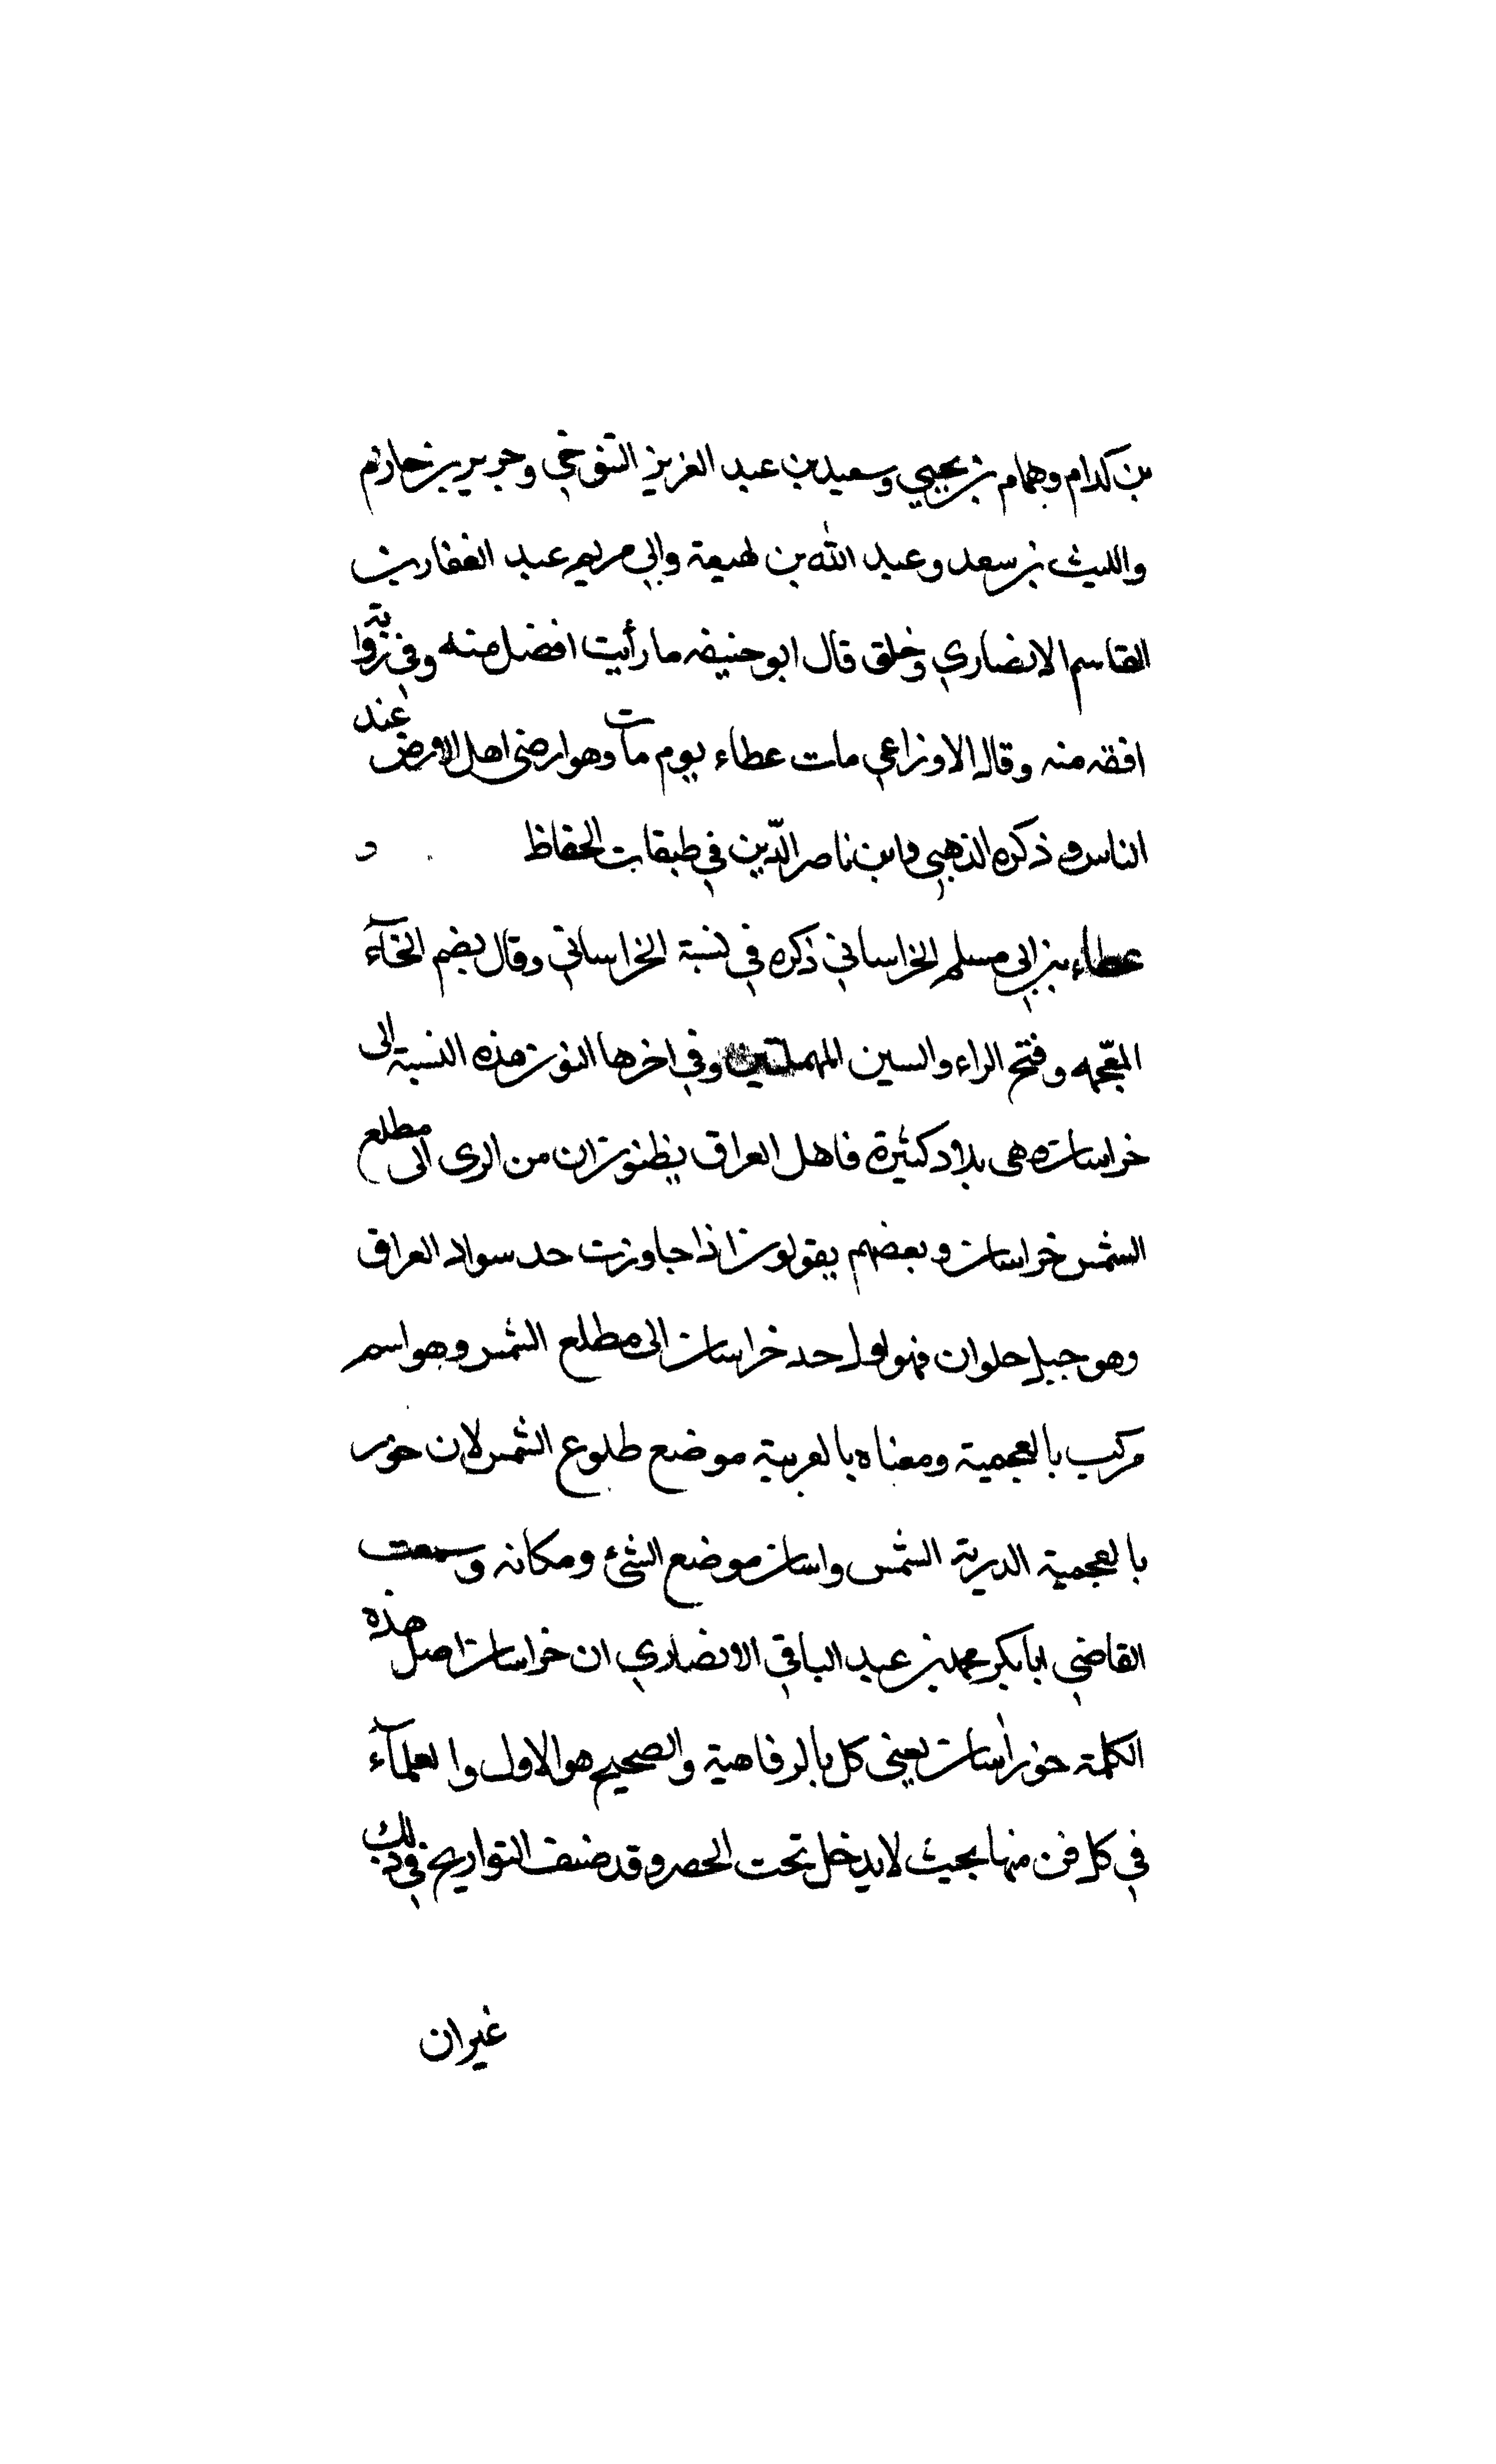 بن كدام وهمام بن يحيي وسعيد بن عبد العزيز التنوخي وجرير بن حازم
والليث بن سعد وعبد الله بن لهيعة وابي مريم عبد الغفار بن
القاسم الانصاري وخلق قال ابو حنيفه ما رأيت افضل منه وفي رواية
افقه منه وقال الاوزاعي مات عطاء يوم مات وهو ارضى اهل الارض عند
الناس وذكره الذهبي وابن ناصر الدّين في طبقات الحفاظ
عطاء بن ابي مسلم الخراساني ذكره في نسبة الخراساني وقال بضم الخآء
المعجمه وفتح الراء والسين المهملتين وفي اخرها النون هذه النسبة الى
خراسان وهي بلاد كثيرة فاهل العراق يظنون ان من الرى الى مطلع
الشمس خراسان وبعضهم يقولون اذا جاوزت حد سواد العراق
وهو جبل حلوان فهو اول حد خراسان الى مطلع الشمس وهو اسم
مركب بالعجمية ومعناه بالعربية موضع طلوع الشمس لان خور
بالعجمية الدرية الشمس واسان موضع الشئ ومكانه وسمعت
القاضي ابا بكر محمد بن عبد الباقي الانصاري ان خراسان اصل هذه
الكلمة خورأسان يعني كل بالرفاهية والصحيح هو الاول والعلمآء
في كل فن منها بحيث لا يدخل تحت الحصر وقد صنف التواريخ في ذلك
غير ان